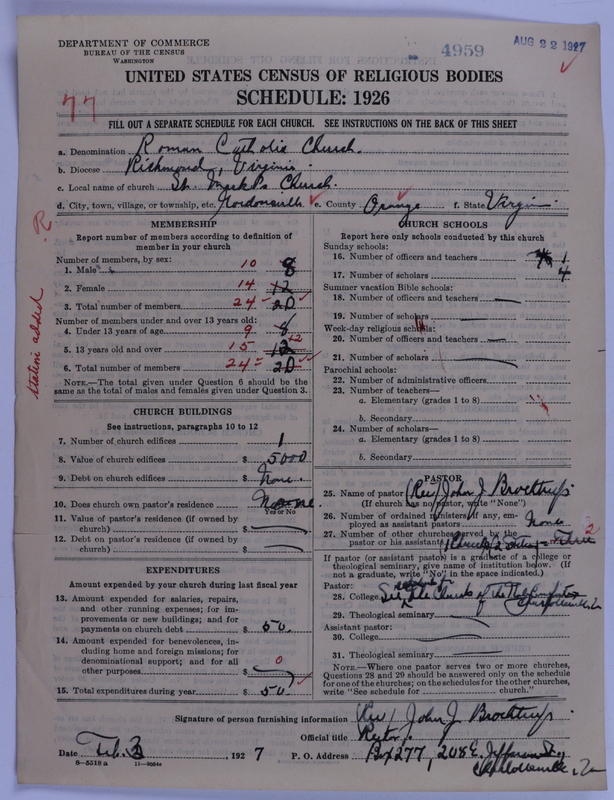 DEPARTMENT OF COMMERCE
BUREAU OF THE CENSUS
WASHINGTON
4959
AUG 22 1927
UNITED STATES CENSUS OF RELIGIOUS BODIES
SCHEDULE: 1926
77
FILL OUT A SEPARATE SCHEDULE FOR EACH CHURCH. SEE INSTRUCTIONS ON THE BACK OF THIS SHEET
a. Denomination Roman Catholic Church.
b. Diocese Richmond, Virginia.
c. Local name of church St. Mark's Church.
d. City, town, village, or township, etc. Gordonsville e. County Orange f. State Virginia
R
MEMBERSHIP
Report number of members according to definition of
member in your church
Number of members, by sex:
1. Male 10 8
2. Female 14 12
3. Total number of members 24 20
Number of members under and over 13 years old:
4. Under 13 years of age 9 8
5. 13 years old and over 15 12
6. Total number of members 24 20
NOTE.—The total given under Question 6 should be
same as the total of males and females given under Question 3.
added
CHURCH BUILDINGS
See instructions, paragraphs 10 to 12
7. Number of church edifices 1
8. Value of church edifices $ 5000
9. Debt on church edifices $ None.
10. Does church own pastor's residence
Yes or No
11. Value of pastor's residence (if owned by
church) $
12. Debt on pastor's residence (if owned by
church) $
EXPENDITURES
Amount expended by your church during last fiscal year
13. Amount expended for salaries, repairs,
and other running expenses; for im-
provements or new buildings; and for
payments on church debt $ 50.
14. Amount expended for benevolences, in-
cluding home and foreign missions; for
denominational support; and for all
other purposes $ 0
15. Total expenditures during year $ 50
CHURCH SCHOOLS
Report here only schools conducted by this church
Sunday schools:
16. Number of officers and teachers 1
17. Number of scholars 4
Summer vacation Bible schools:
18. Number of officers and teachers
19. Number of scholars
Week-day religious schools:
20. Number of officers and teachers
21. Number of scholars
Parochial schools:
22. Number of administrative officers
23. Number of teachers—
a. Elementary (grades 1 to 8)
b. Secondary
24. Number of scholars—
a. Elementary (grades 1 to 8)
b. Secondary
PASTOR
25. Name of pastor (Rev) John J. Brochtrup
(If church has no pastor, write "None")
26. Number of ordained ministers, if any, em-
ployed as assistant pastors None
27. Number of other churches served by the
pastor or his assistant 2
If pastor (or assistant pastor) is a graduate of a college or
theological seminary, give name of institution below. (If
not a graduate, write "No" in the space indicated.)
Pastor:
28. College See Church of the Holy Comforter
Charlottesville
29. Theological seminary
Assistant pastor:
30. College
31. Theological seminary
NOTE.—Where one pastor serves two or more churches,
Questions 28 and 29 should be answered only on the schedule
for one of the churches; on the schedules for the other churches,
write "See schedule for church."
Signature of person furnishing information (Rev) John J. Brochtrup
Official title Rector.
Date Feb. 3, 1927 P. O. Address Box 277, 208 E. Jefferson St.
Charlottesville, Va
8—5518 a